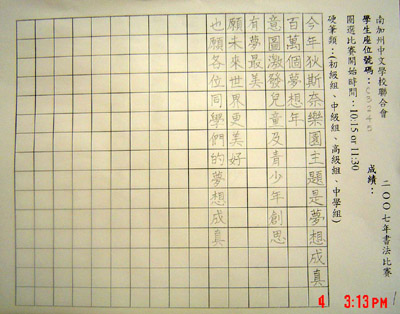 南加州中文學校聯合會
二００七年書法比賽
學生座位號碼：
成績：
圈選比賽開始時間：10:15 or 11:30
硬筆類：(初級組、中級組、高級組、中學組)
今年狄斯奈樂園主題是夢想成真
百萬個夢想年
意圖激發兒童及青少年創思
有夢最美
願未來世界更美好
也願各位同學們的夢想成真
4 3:13PM